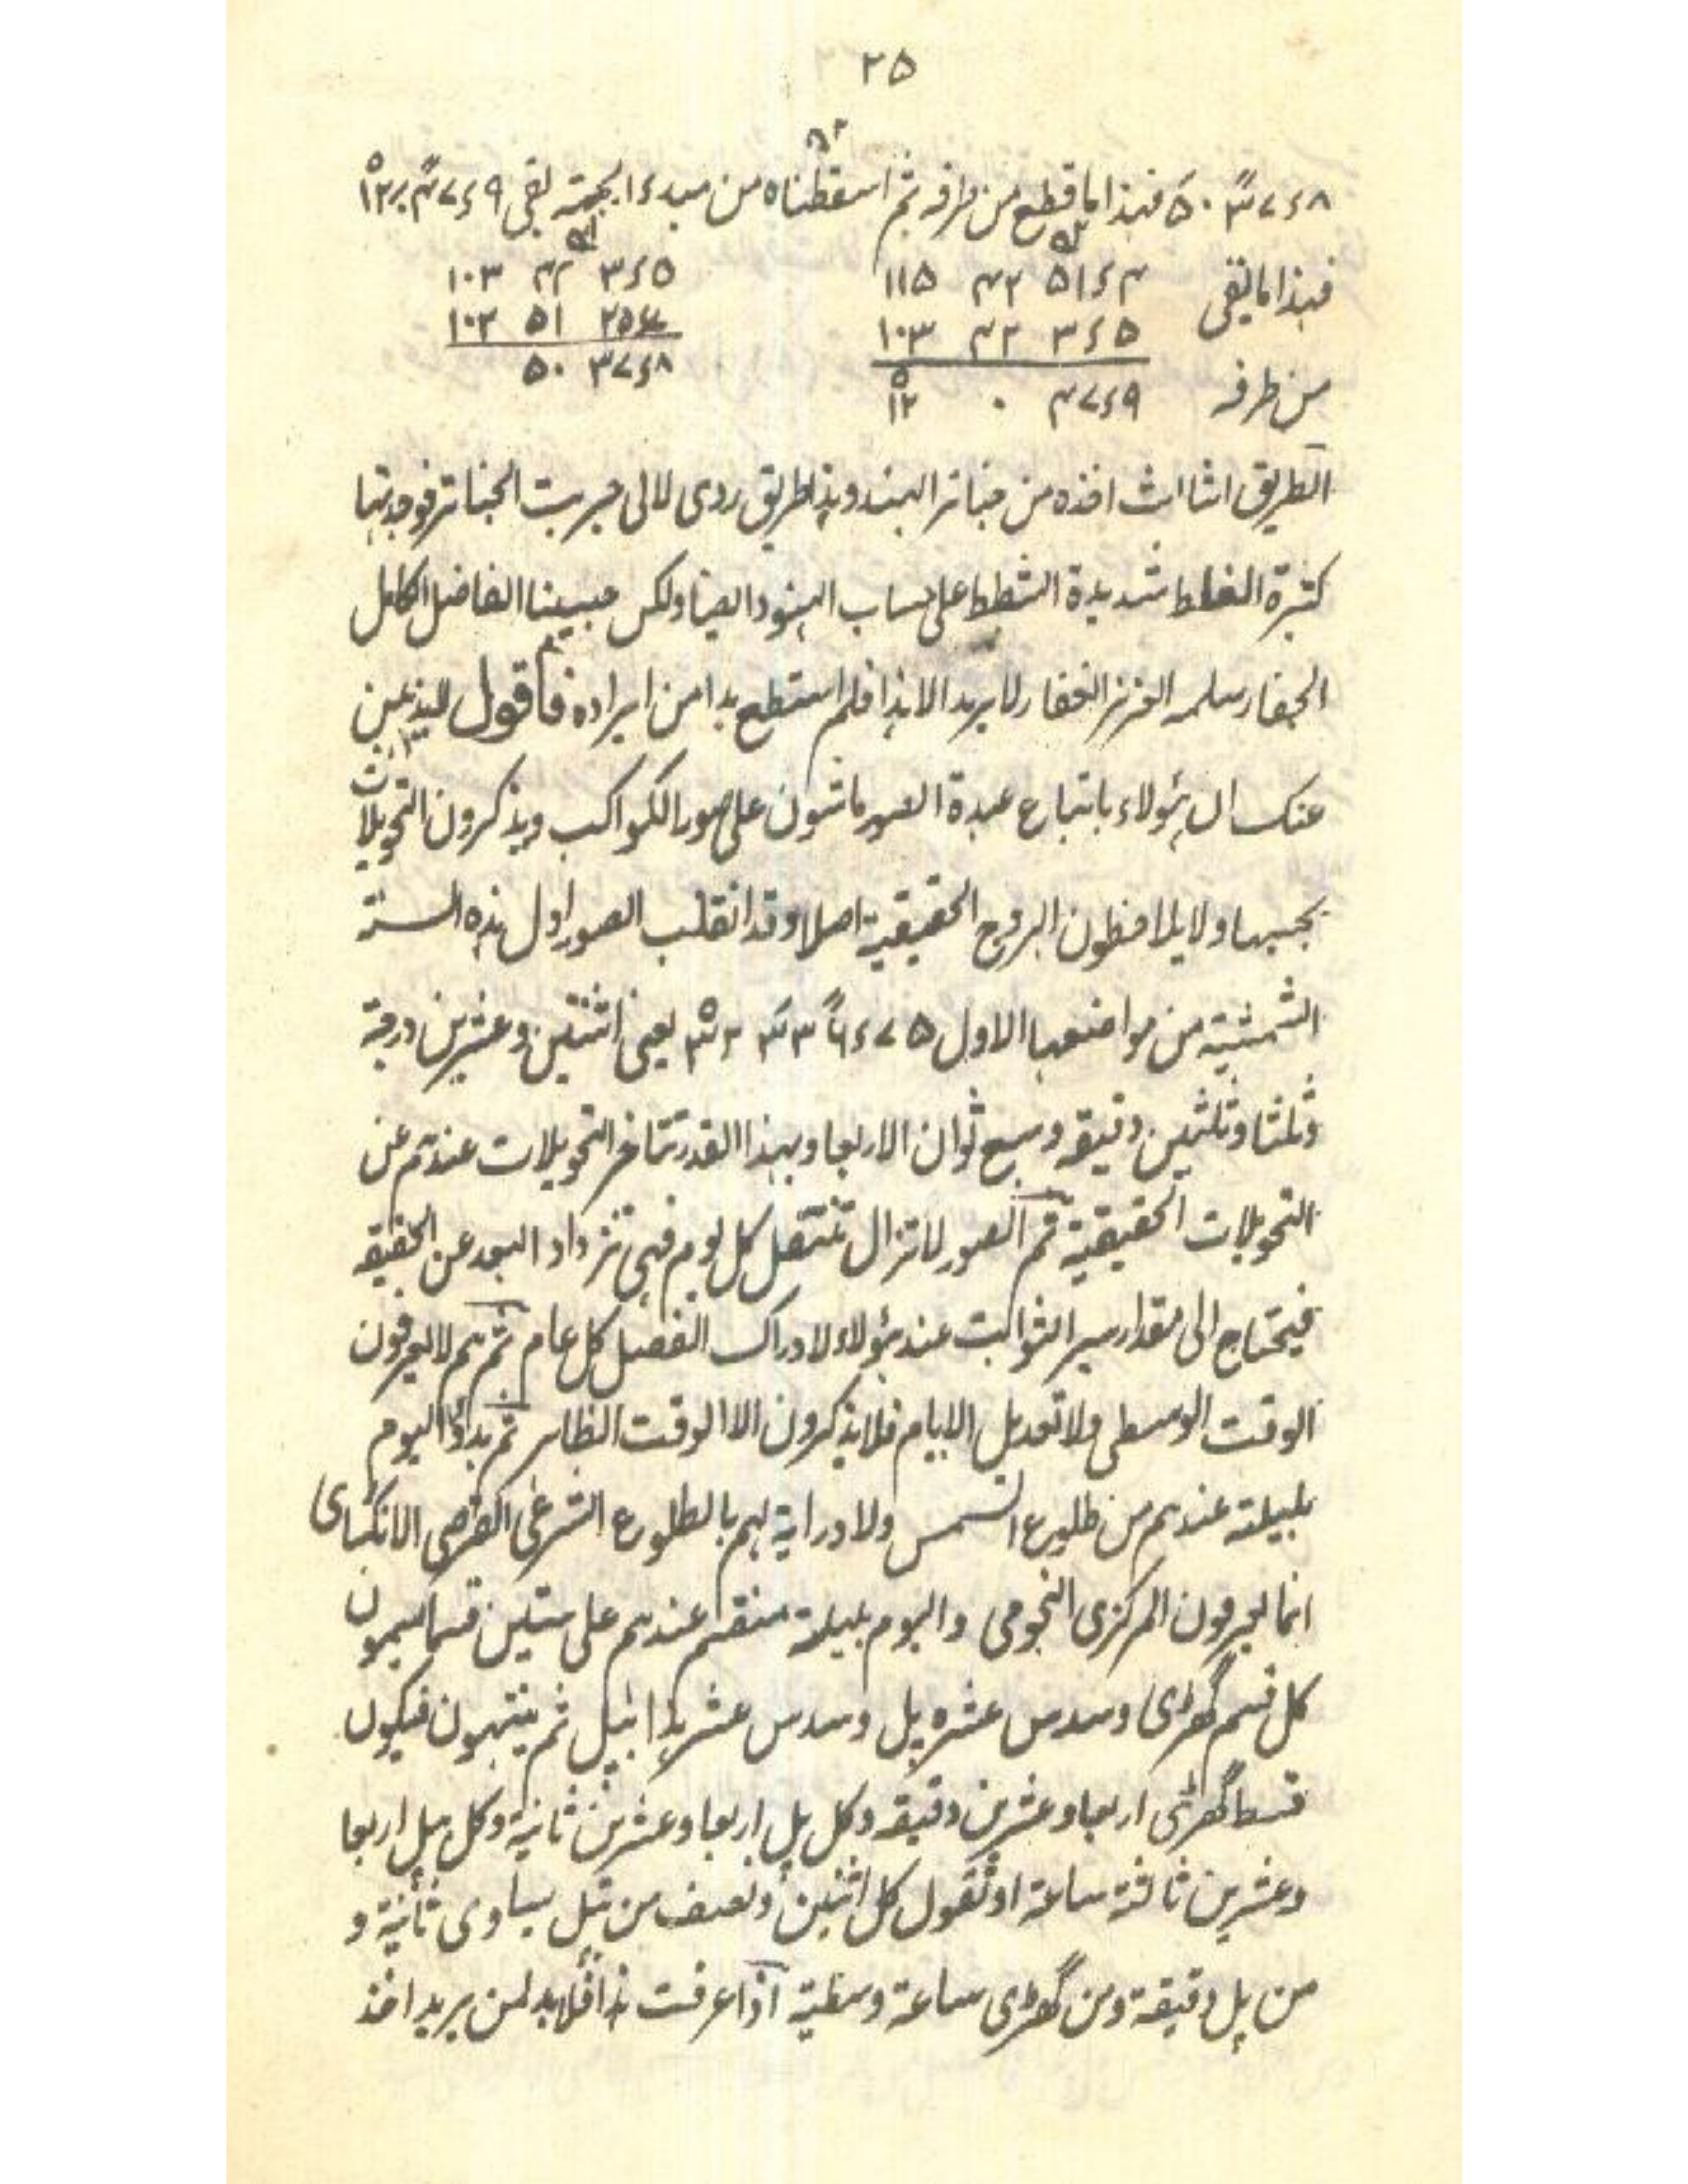 ۲۵
فهذا ما قطع من طرفه ثم اسقطناه من مبدء الجهة بقی
فهذا ما بقی
۱۱۵ ۴۲ ۵۱ء۴ ۱۰۳ ۴۲ ۳ء۵
۱۰۳ ۴۲ ۳ء۵ ۱۰۲ ۵۱
من طرفه ۱۲ ۰ ۴۷ء۹ ۵۰ ۳۷ء۸
الطریق الثالث اخذه من جناتر الهند وهذا طریق ردی لانی جربت الجناتر فوجدتها
کثیرة الغلط شدیدة الشطط علی حساب الهنود ایضا ولکن حبیبنا الفاضل الکامل
الجفار سلمه العزیز الغفار لا یرید الا هذا فلم استطع بدا من ایراده فاقول
عنک ان هٰؤلاء باتباع عبدة الصور ماشون علی صور الکواکب ویذکرون التحویلات
بحسبها ولا یلاحظون البروج الحقیقیة اصلا وقد انقلب الصور اول هذه السنة
الشمسیة من مواضعها الاول یعنی اثنتین وعشرین درجة
وثلثا وثلثین دقیقه وسبع ثوان الا ربعا وبهذا القدر تتاخر التحویلات عندهم عن
التحویلات الحقیقیة ثم الصور لا تزال تنتقل کل یوم فهی تزداد البعد عن الحقیقه
فیحتاج الی مقدار سیر الثوابت عند هٰؤلاء لادراک الفصل کل عام ثم هم لا یعرفون
الوقت الوسطی ولا تعدیل الایام فلا یذکرون الا الوقت الظاهر ثم بدؤ الیوم
بلیلته عندهم من طلوع الشمس ولا درایة لهم بالطلوع الشرعی القرصی الانکساری
انما یعرفون المرکزی النجومی والیوم بلیلته منقسم عندهم علی ستین قسما یسمون
کل قسم گھڑی وسدس عشره پل وسدس عشر هذا بپل ثم ینتهون فیکون
قسط گھڑی اربعا وعشرین دقیقه وکل پل اربعا وعشرین ثانیة وکل بپل اربعا
وعشرین ثالثة ساعة او نقول کل اثنین ونصف من بپل یساوی ثانیة و
من پل دقیقة ومن گھڑی ساعة وسطیة اذا عرفت هذا فلا بد لمن یرید اخذ